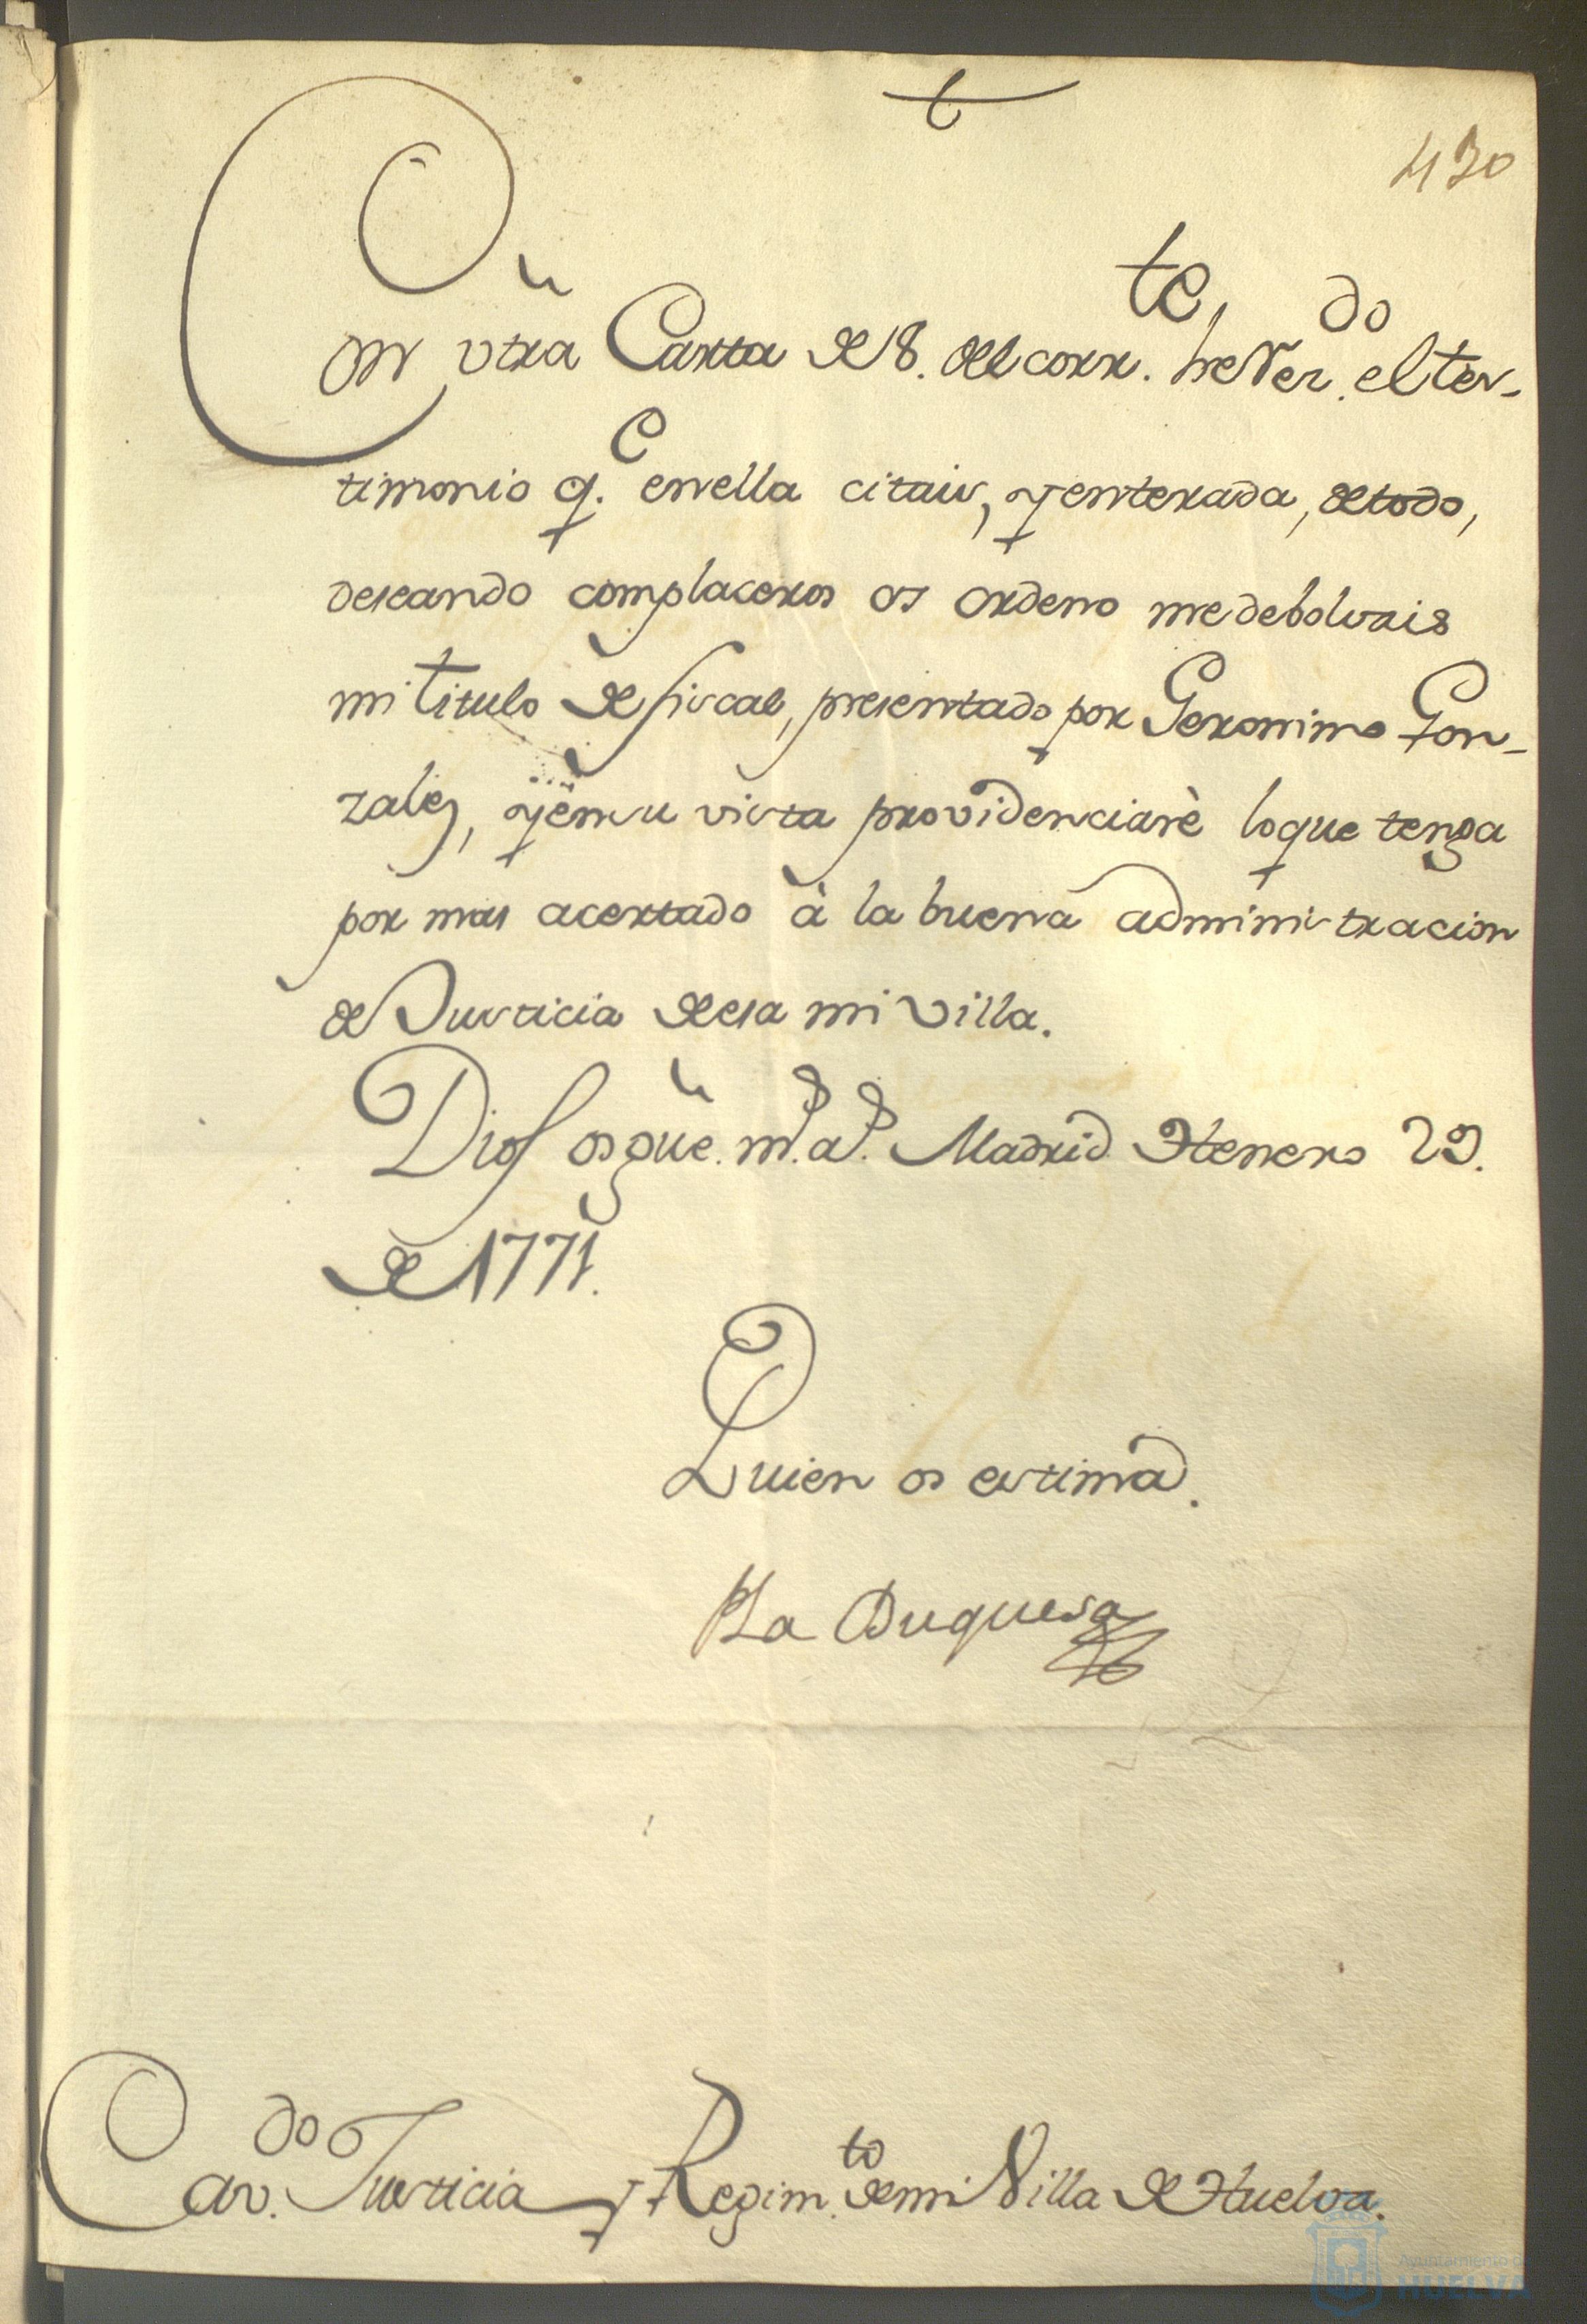 t
430
Con vtra Carta de 8. del corr.te, he Ver.do el tes-
timonio q.e en ella citais, y enterada, de todo,
deseando complaceros os ordeno me debolvais
mi titulo de fiscal, presentado por Geronimo Gon-
zalez, y en su vista providenciarè lo que tenga
por mas acertado à la buena administracion
de Justicia de esa mi Villa.
Dios os gūe. m.s a.s Madrid Henero 29.
de 1771.
Quien os estima.
La Duquesa
Cav.do Justicia y Regim.to de mi Villa de Huelva.
Ayuntamiento de
HUELVA